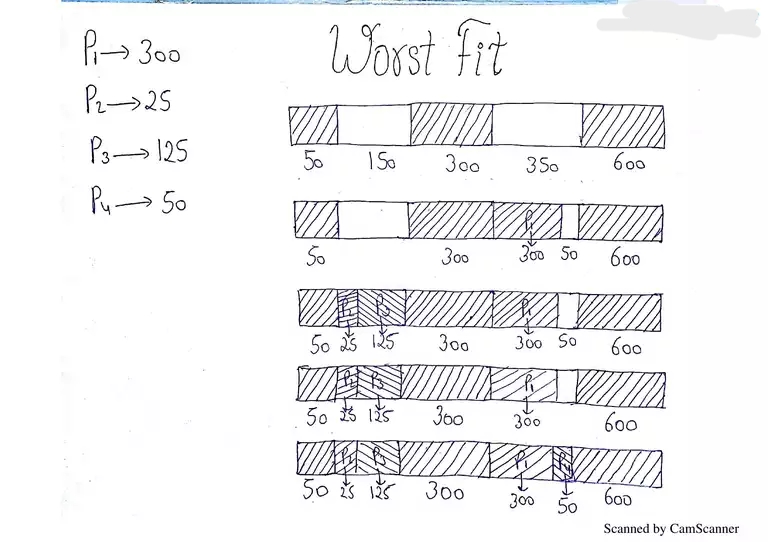 Worst Fit
P1 → 300
P2 → 25
P3 → 125
P4 → 50
50 150 300 350 600
P1
50 300 300 50 600
P2 P3 P1
50 25 125 300 300 50 600
P2 P3 P1
50 25 125 300 300 600
P2 P3 P1 P4
50 25 125 300 300 50 600
Scanned by CamScanner